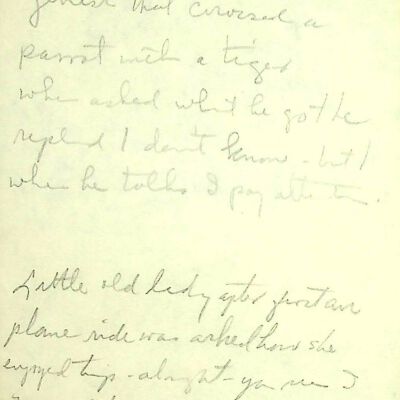 that crossed a
parrot with a tiger
when asked what he got he
replied I don't know - but I
when he talks I pay attention.
Little old lady after first air
plane ride was asked how she
enjoyed trip - alright - you see I